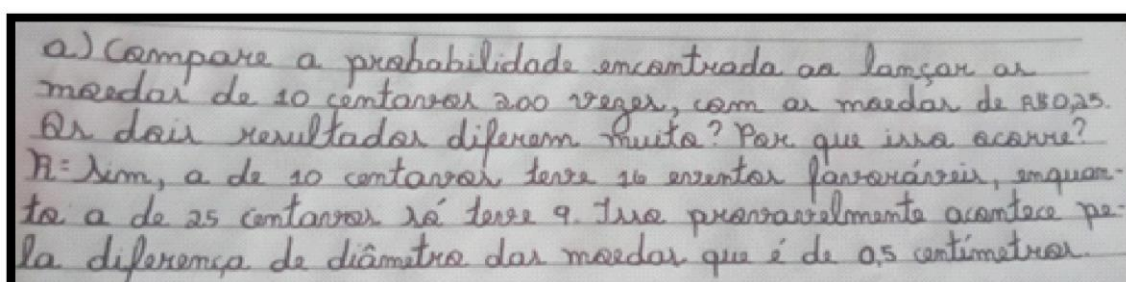 a) Compare a probabilidade encontrada ao lançar as
moedas de 10 centavos 200 vezes, com as moedas de R$0,25.
Os dois resultados diferem muito? Por que isso ocorre?
R= Sim, a de 10 centavos teve 16 eventos favoráveis, enquan-
to a de 25 centavos só teve 9. Isso provavelmente acontece pe-
la diferença de diâmetro das moedas que é de 0,5 centímetros.